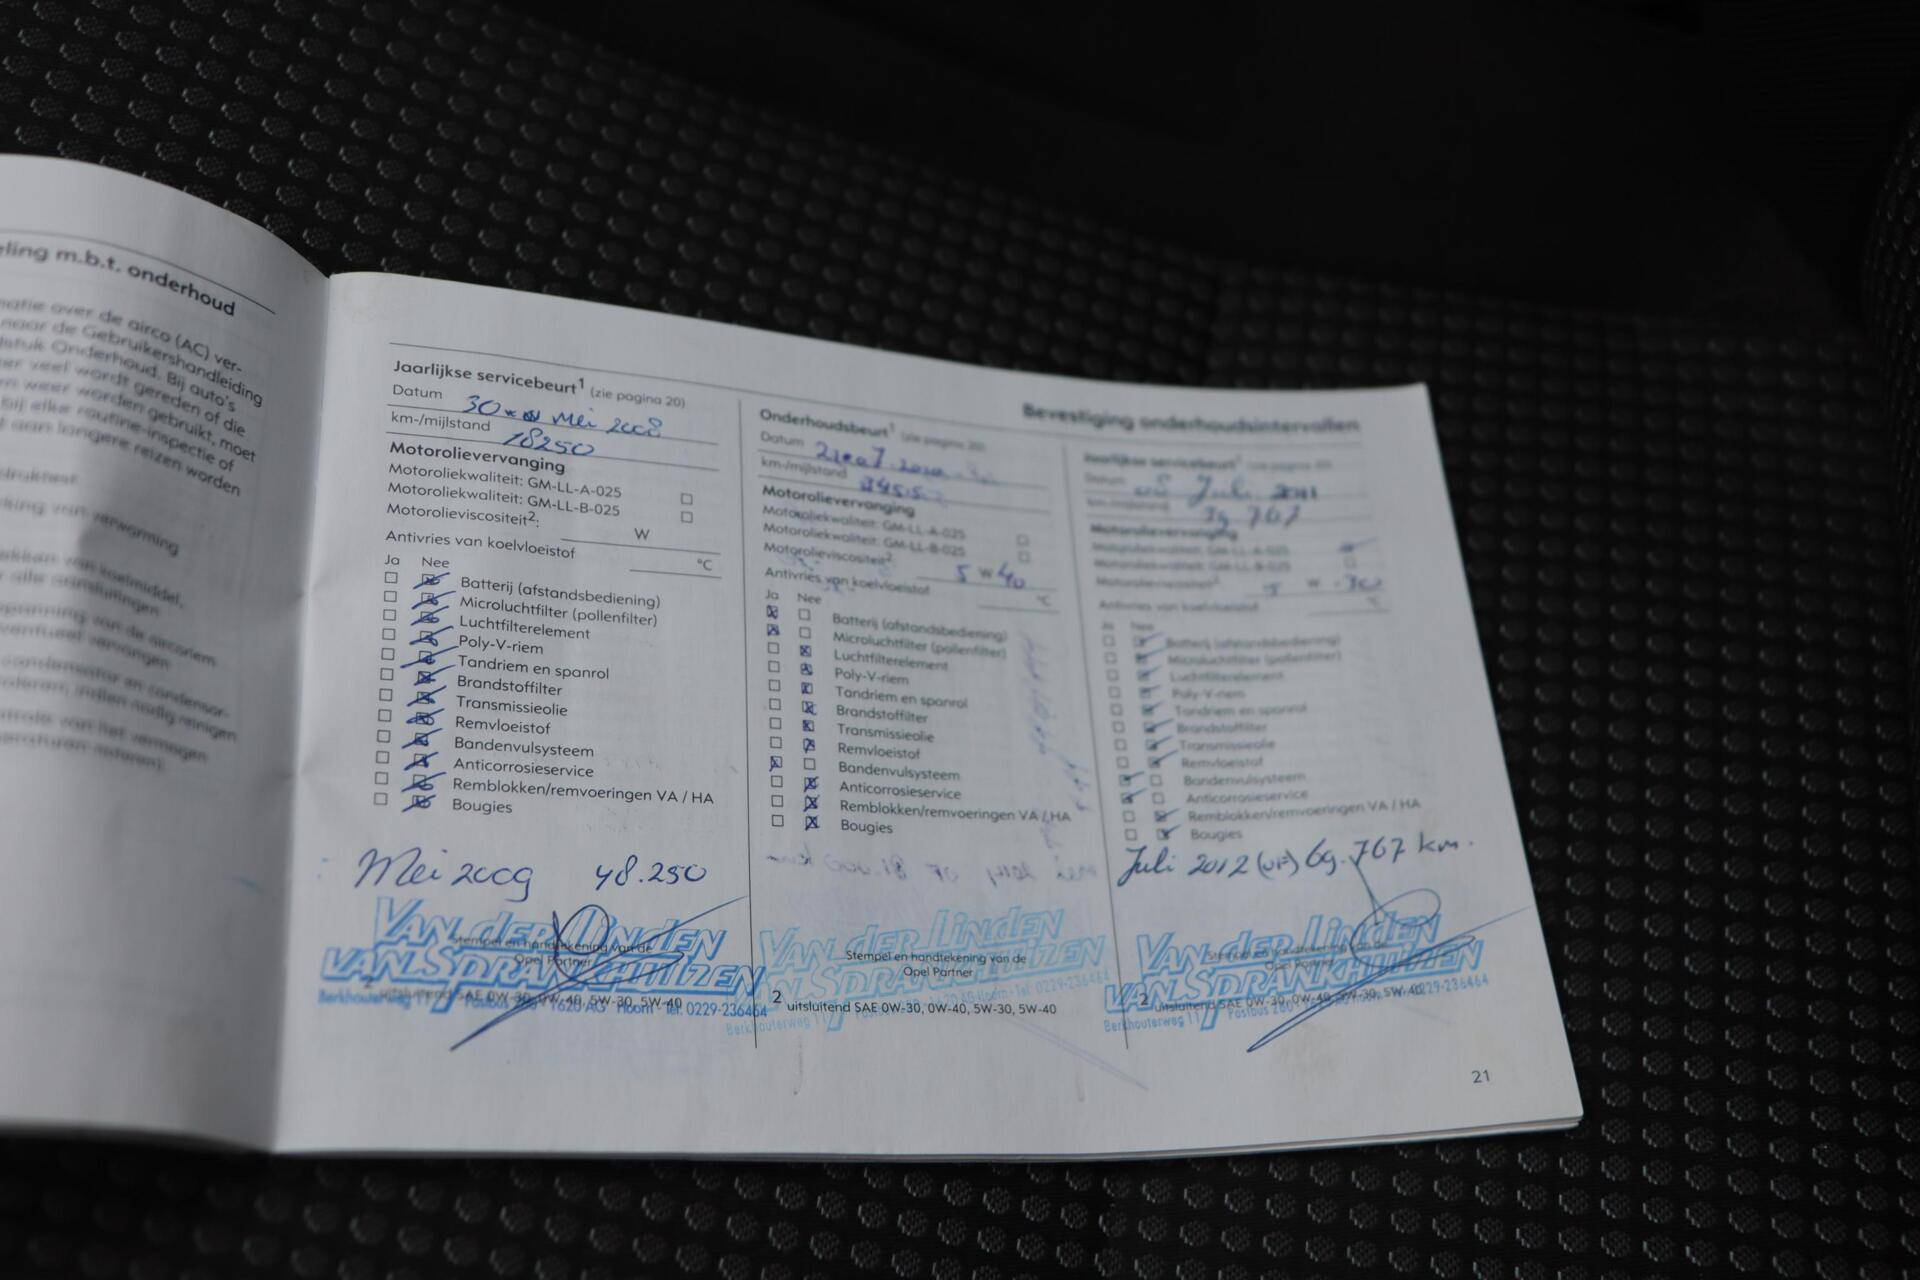 eling m.b.t. onderhoud
matie over de airco (AC) ver-
naar de Gebruikershandleiding
stuk Onderhoud. Bij auto's
er veel wordt gereden of die
weer worden gebruikt, moet
bij elke routine-inspectie of
aan langere reizen worden
king van verwarming
van koelmiddel,
alle aansluitingen
spanning van de aircoriem
eventueel vervangen
condensator en condensor-
indien nodig reinigen
van het vermogen
Jaarlijkse servicebeurt1 (zie pagina 20)
Datum 30 Mei 2008
km-/mijlstand 18250
Motorolievervanging
Motoroliekwaliteit: GM-LL-A-025
Motoroliekwaliteit: GM-LL-B-025
Motorolieviscositeit2: W
Antivries van koelvloeistof °C
Ja Nee
Batterij (afstandsbediening)
Microluchtfilter (pollenfilter)
Luchtfilterelement
Poly-V-riem
Tandriem en spanrol
Brandstoffilter
Transmissieolie
Remvloeistof
Bandenvulsysteem
Anticorrosieservice
Remblokken/remvoeringen VA / HA
Bougies
Mei 2009 48.250
VAN der Linden
VAN SPRANKHUIZEN
Stempel en handtekening van de
Opel Partner
2 uitsluitend SAE 0W-30, 0W-40, 5W-30, 5W-40
Berkhouterweg 1620 AG Hoorn - Tel. 0229-236464
Onderhoudsbeurt1 (zie pagina 20)
Datum
km-/mijlstand
Motorolievervanging
Motoroliekwaliteit: GM-LL-A-025
Motoroliekwaliteit: GM-LL-B-025
Motorolieviscositeit2: 5 W 40
Antivries van koelvloeistof °C
Ja Nee
Batterij (afstandsbediening)
Microluchtfilter (pollenfilter)
Luchtfilterelement
Poly-V-riem
Tandriem en spanrol
Brandstoffilter
Transmissieolie
Remvloeistof
Bandenvulsysteem
Anticorrosieservice
Remblokken/remvoeringen VA / HA
Bougies
VAN der Linden
VAN SPRANKHUIZEN
Stempel en handtekening van de
Opel Partner
2 uitsluitend SAE 0W-30, 0W-40, 5W-30, 5W-40
Berkhouterweg 11 1620 AG Hoorn - Tel. 0229-236464
Bevestiging onderhoudsintervallen
Jaarlijkse servicebeurt1 (zie pagina 20)
Datum Juli 2011
km-/mijlstand 39 767
Motorolievervanging
Motoroliekwaliteit: GM-LL-A-025
Motoroliekwaliteit: GM-LL-B-025
Motorolieviscositeit2: 5 W -30
Antivries van koelvloeistof °C
Ja Nee
Batterij (afstandsbediening)
Microluchtfilter (pollenfilter)
Luchtfilterelement
Poly-V-riem
Tandriem en spanrol
Brandstoffilter
Transmissieolie
Remvloeistof
Bandenvulsysteem
Anticorrosieservice
Remblokken/remvoeringen VA / HA
Bougies
Juli 2012 (OF) 69.767 km.
VAN der Linden
VAN SPRANKHUIZEN
Stempel en handtekening van de
Opel Partner
2 uitsluitend SAE 0W-30, 0W-40, 5W-30, 5W-40
Berkhouterweg 11 Postbus 260 0229-236464
21